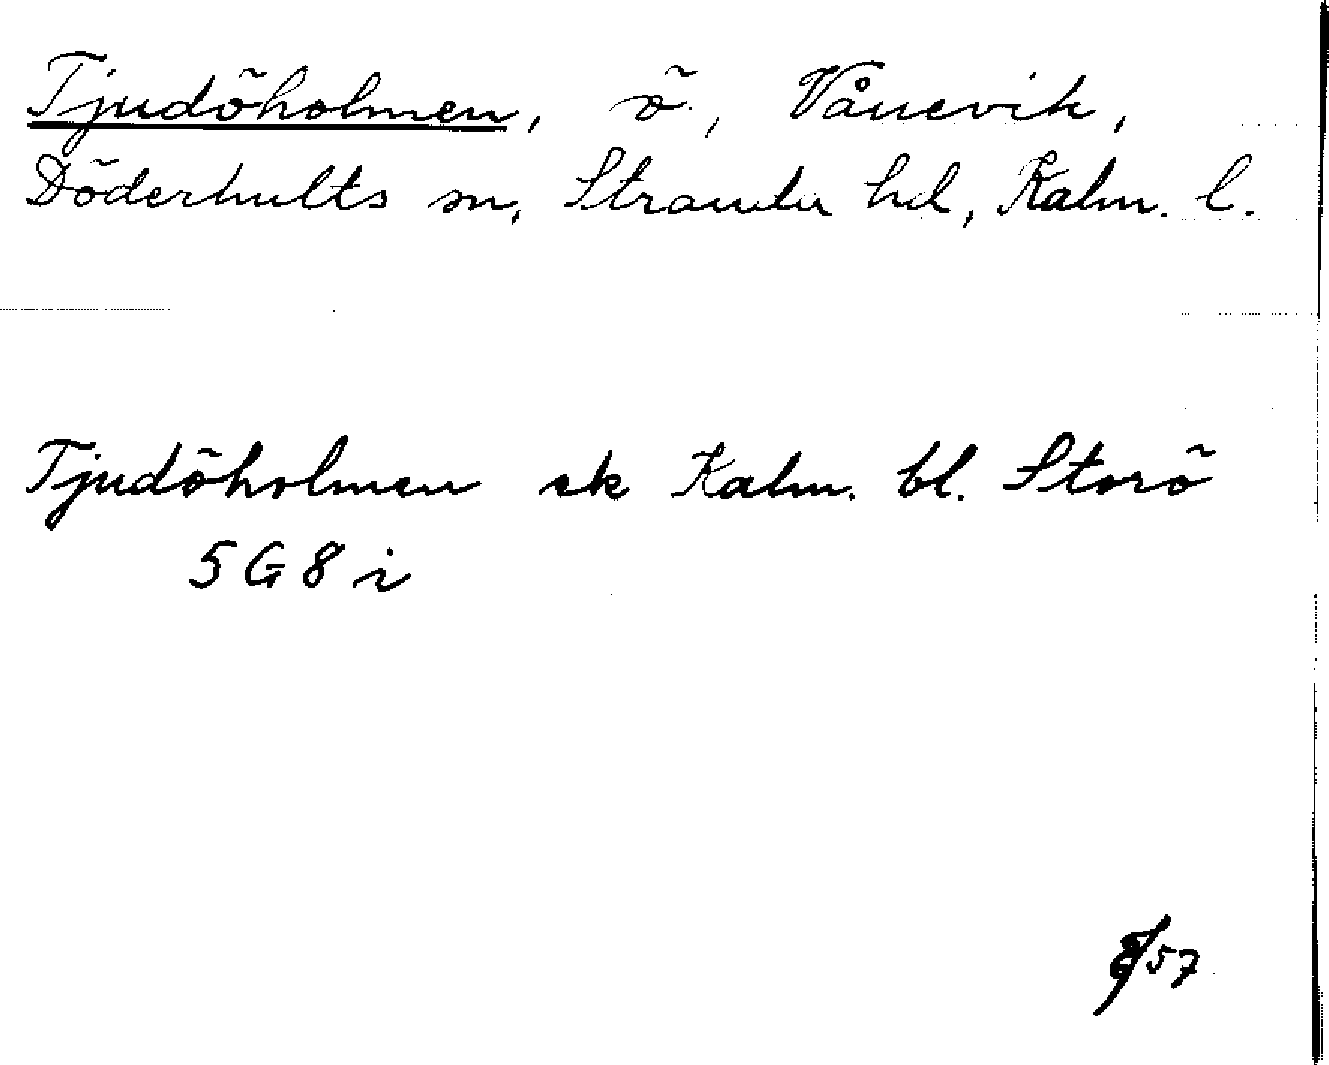 Tjudöholmen, ö, Vånevik,
Döderhults sn, Stranda hd, Kalm. l.
Tjudöholmen ek Kalm. bl. Storö
5G8i
57